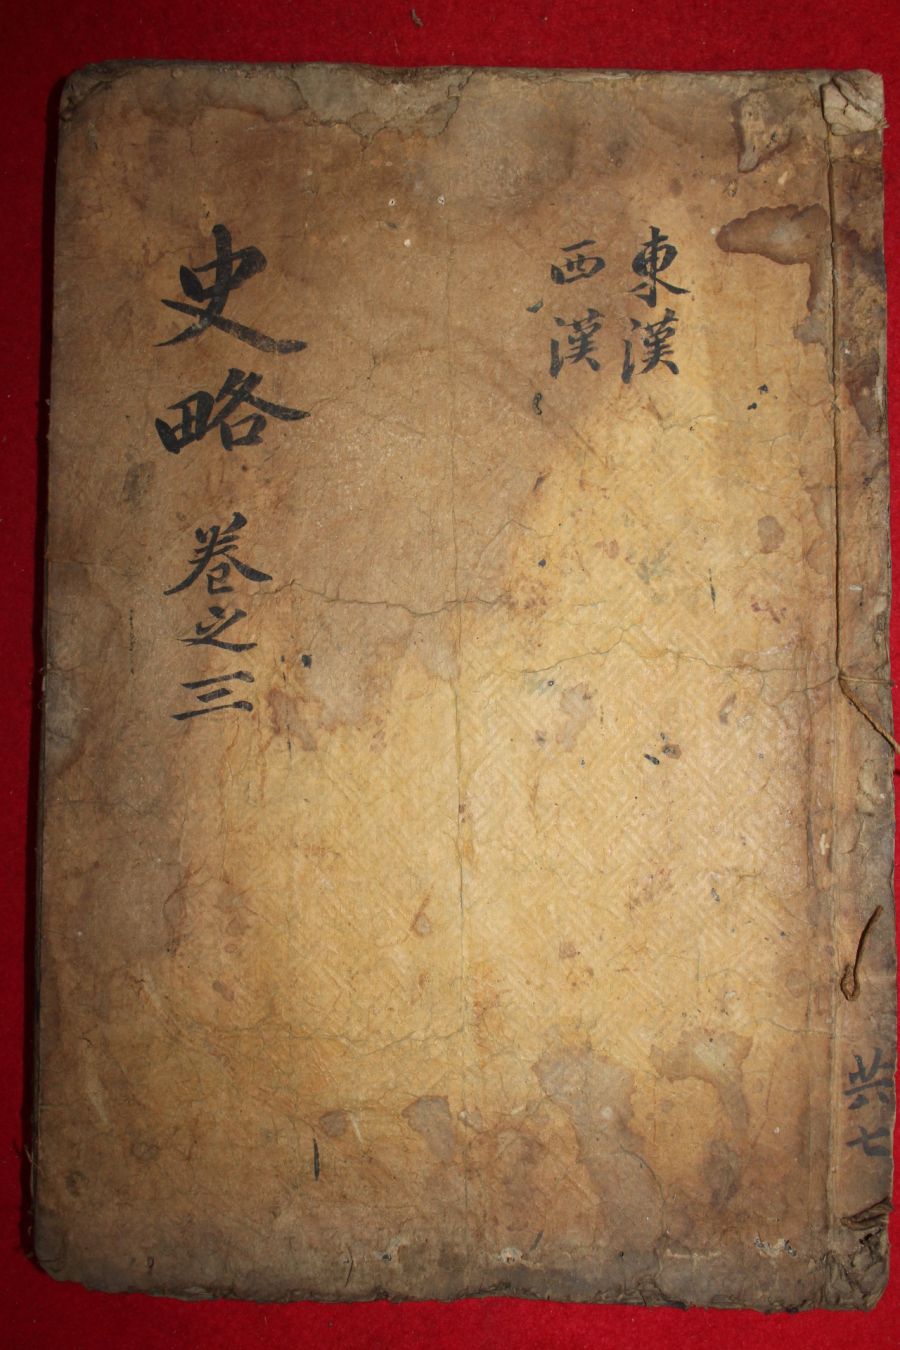 東漢
西漢
史略 卷之三
共七